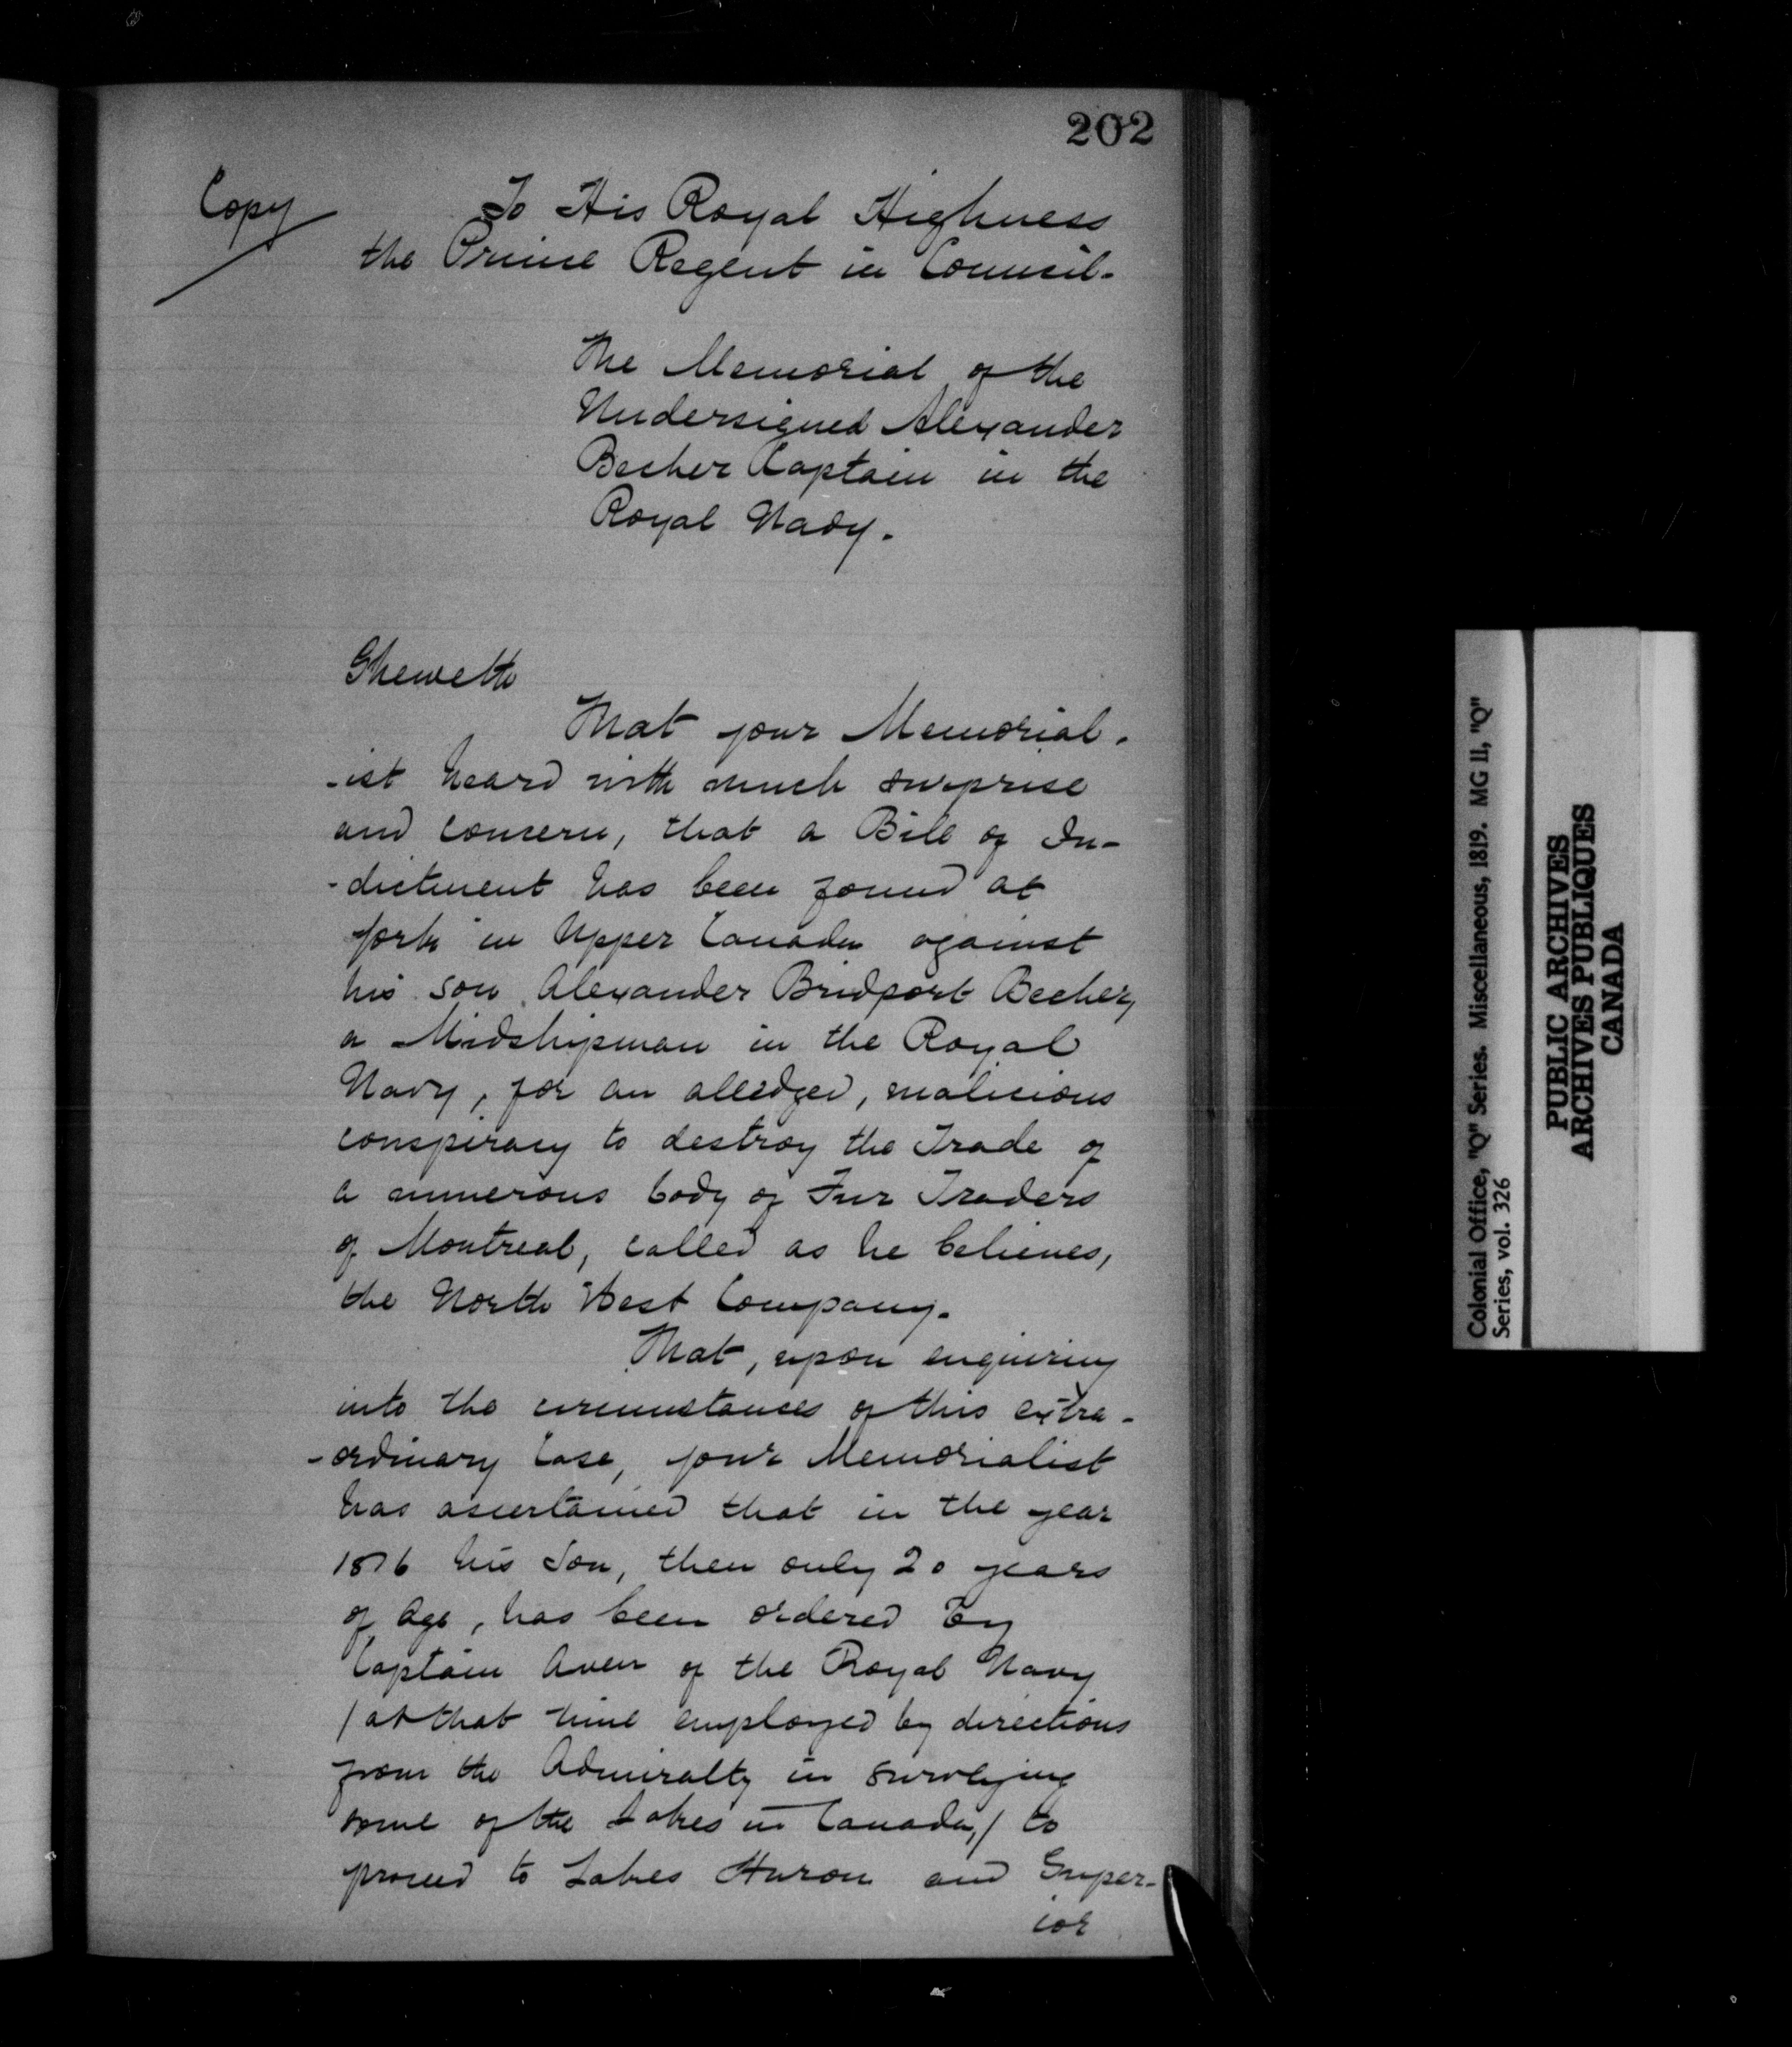 202
Copy
To His Royal Highness
the Prince Regent in Council.
The Memorial of the
Undersigned Alexander
Becher Captain in the
Royal Navy.
Sheweth
That your Memorial-
-ist heard with much surprise
and concern, that a Bill of In-
-dictment has been found at
York in Upper Canada against
his son Alexander Bridport Becher,
a Midshipman in the Royal
Navy, for an alledged, malicious
conspiracy to destroy the Trade of
a numerous body of Fur Traders
of Montreal, called as he believes,
the North West Company.
That, upon enquiring
into the circumstances of this extra-
-ordinary Case, your Memorialist
has ascertained that in the year
1816 his Son, then only 20 years
of Age, has been ordered by
Captain Owen of the Royal Navy
/at that time employed by directions
from the Admiralty in surveying
some of the Lakes in Canada,/ to
proceed to Lakes Huron and Super-
ior
Colonial Office, "Q" Series. Miscellaneous, 1819. MG 11, "Q"
Series, vol. 326
PUBLIC ARCHIVES
ARCHIVES PUBLIQUES
CANADA